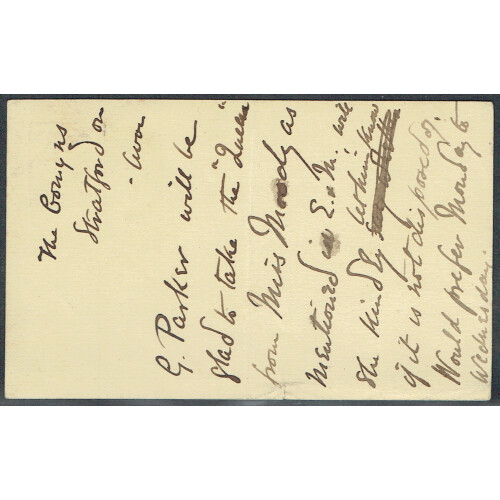 The Comyns
Stratford on
Avon
G. Parker will be
glad to take the "Queen"
from Miss Moody as
mentioned in E. & M. will
she kindly let him know
if it is not disposed of.
Would prefer Monday to
Wednesday.